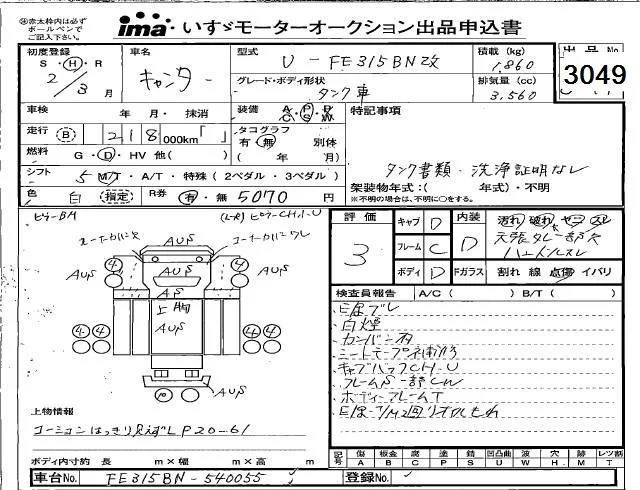 ※赤太枠内は必ず
ボールペンで
ご記入下さい。
ima いすゞモーターオークション出品申込書
初度登録
S・H・R
2/3月
車名
キャンター
型式
U-FE315BN改
積載 (kg)
1,860
出品No.
3049
グレード・ボディ形状
タンク車
排気量 (cc)
3,560
車検 年・月・抹消
装備
特記事項
走行 B 218 000km「 」
タコグラフ
有・無 別体
( 年 月)
燃料 G・D・HV 他( )
タンク書類・洗浄証明なし
シフト 5 M/T・A/T・特殊 (2ペダル・3ペダル)
架装物年式:( 年式)・不明
色 白 指定 R券 有・無 5070 円
※不明の場合は、不明に○をする。
評価 3
キャブ D
フレーム C
ボディ D
内装 D
汚れ 破れ ヤニ スレ
天張タレ一部欠
ハンドルスレ
Fガラス 割れ 線 点傷 イバリ
コーナーカバー欠
コーナーカバーワレ
AUS
4 4
AUS AUS
AS
上物
AUS AUS
4 4 4 4
AUS
10
検査員報告 A/C ( ) B/T ( )
白煙
カンバン有
シートテープ補修
キャブバックCH-U
フレームS一部CW
ボディーフレームT
上物情報
コーションはっきり見えず LP20-61
ボディ内寸約 長 m×幅 m×高 m
記号 傷 A 板金 B 腐 C 塗 P 錆 S 凹凸曲 U 波 W 穴 H. 跡 M レツ割 T
車台No. FE315BN-540055
登録No.